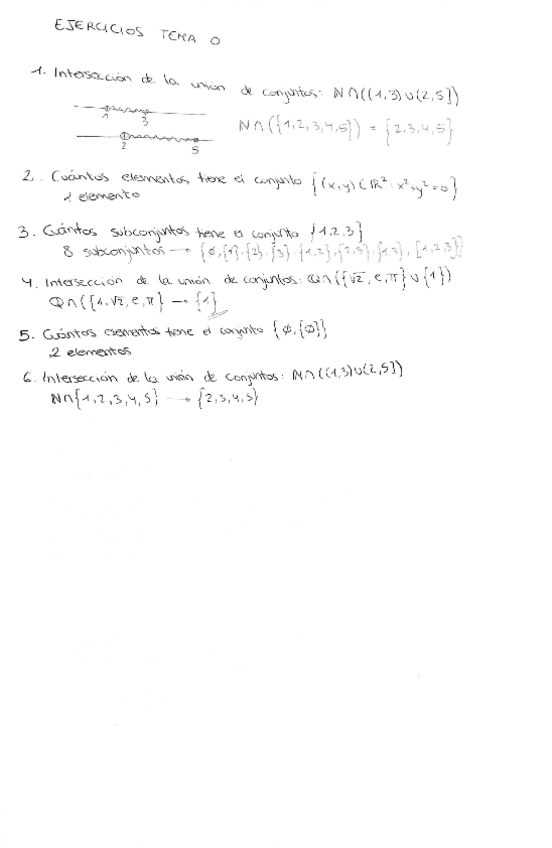 EJERCICIOS TEMA 0
1. Intersección de la unión de conjuntos: N∩((1,3)∪(2,5])
1 3
2 5
N∩({1,2,3,4,5}) = {2,3,4,5}
2. Cuántos elementos tiene el conjunto {(x,y)∈ℝ²: x²+y²=0}
1 elemento
3. Cuántos subconjuntos tiene el conjunto {1,2,3}
8 subconjuntos → {ø,{1},{2},{3},{1,2},{2,3},{1,3},{1,2,3}}
4. Intersección de la unión de conjuntos: Q∩({√2, e, π}∪{1})
Q∩({1,√2, e, π} → {1}
5. Cuántos elementos tiene el conjunto {ø,{ø}}
2 elementos
6. Intersección de la unión de conjuntos: N∩((1,3)∪(2,5])
N∩{1,2,3,4,5} → {2,3,4,5}